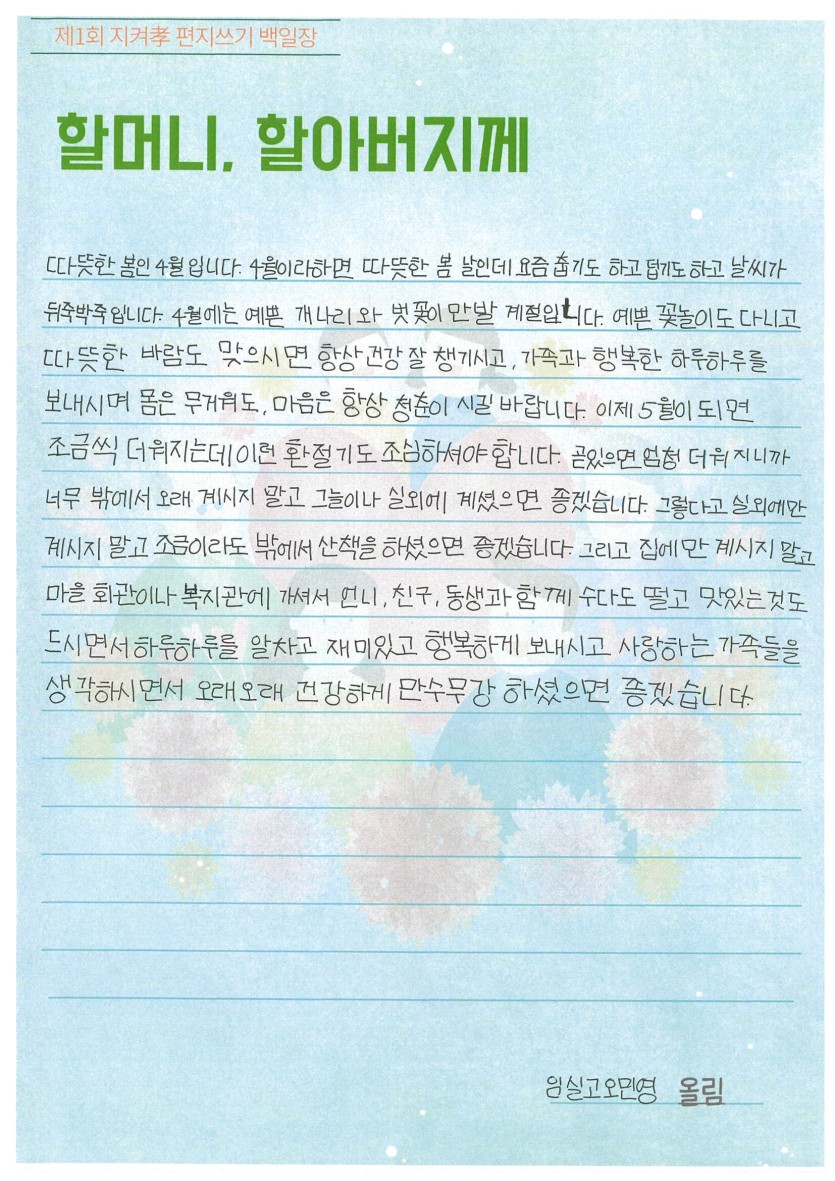 제1회 지켜孝 편지쓰기 백일장
할머니, 할아버지께
따뜻한 봄인 4월 입니다. 4월이라하면 따뜻한 봄 날인데 요즘 춥기도 하고 덥기도 하고 날씨가
뒤죽박죽 입니다. 4월에는 예쁜 개나리와 벚꽃이 만발 계절입니다. 예쁜 꽃놀이도 다니고
따뜻한 바람도 맞으시면 항상 건강 잘 챙기시고, 가족과 행복한 하루하루를
보내시며 몸은 무거워도, 마음은 항상 청춘이 시길 바랍니다. 이제 5월이 되면
조금씩 더워지는데 이런 환절기도 조심하셔야 합니다. 곧있으면 엄청 더워 지니까
너무 밖에서 오래 계시지 말고 그늘이나 실외에 계셨으면 좋겠습니다. 그렇다고 실외에만
계시지 말고 조금이라도 밖에서 산책을 하셨으면 좋겠습니다. 그리고 집에만 계시지 말고
마을 회관이나 복지관에 가셔서 언니, 친구, 동생과 함께 수다도 떨고 맛있는것도
드시면서 하루하루를 알차고 재미있고 행복하게 보내시고 사랑하는 가족들을
생각하시면서 오래오래 건강하게 만수무강 하셨으면 좋겠습니다.
임실고 오민영 올림